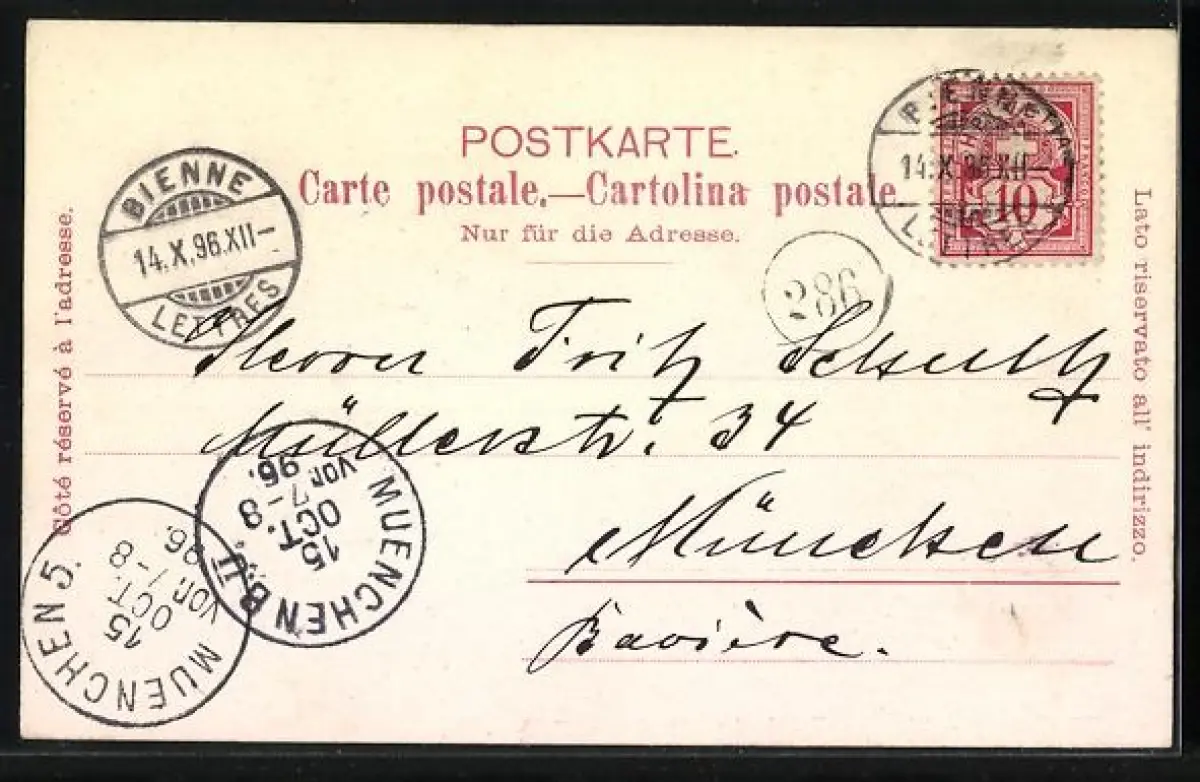 POSTKARTE.
Carte postale.—Cartolina postale.
Nur für die Adresse.
Côté réservé à l'adresse.
Lato riservato all' indirizzo.
BIENNE
14.X.96.XII–
LETTRES
14.X.96.XII–
10
286
Herrn Fritz Schultz
Müllerstr. 34
München
Bavière.
MUENCHEN B.II.
15
OCT.
7-8
VOR.
96.
MUENCHEN 5.
15
OCT.
VOR. 7-8
96.